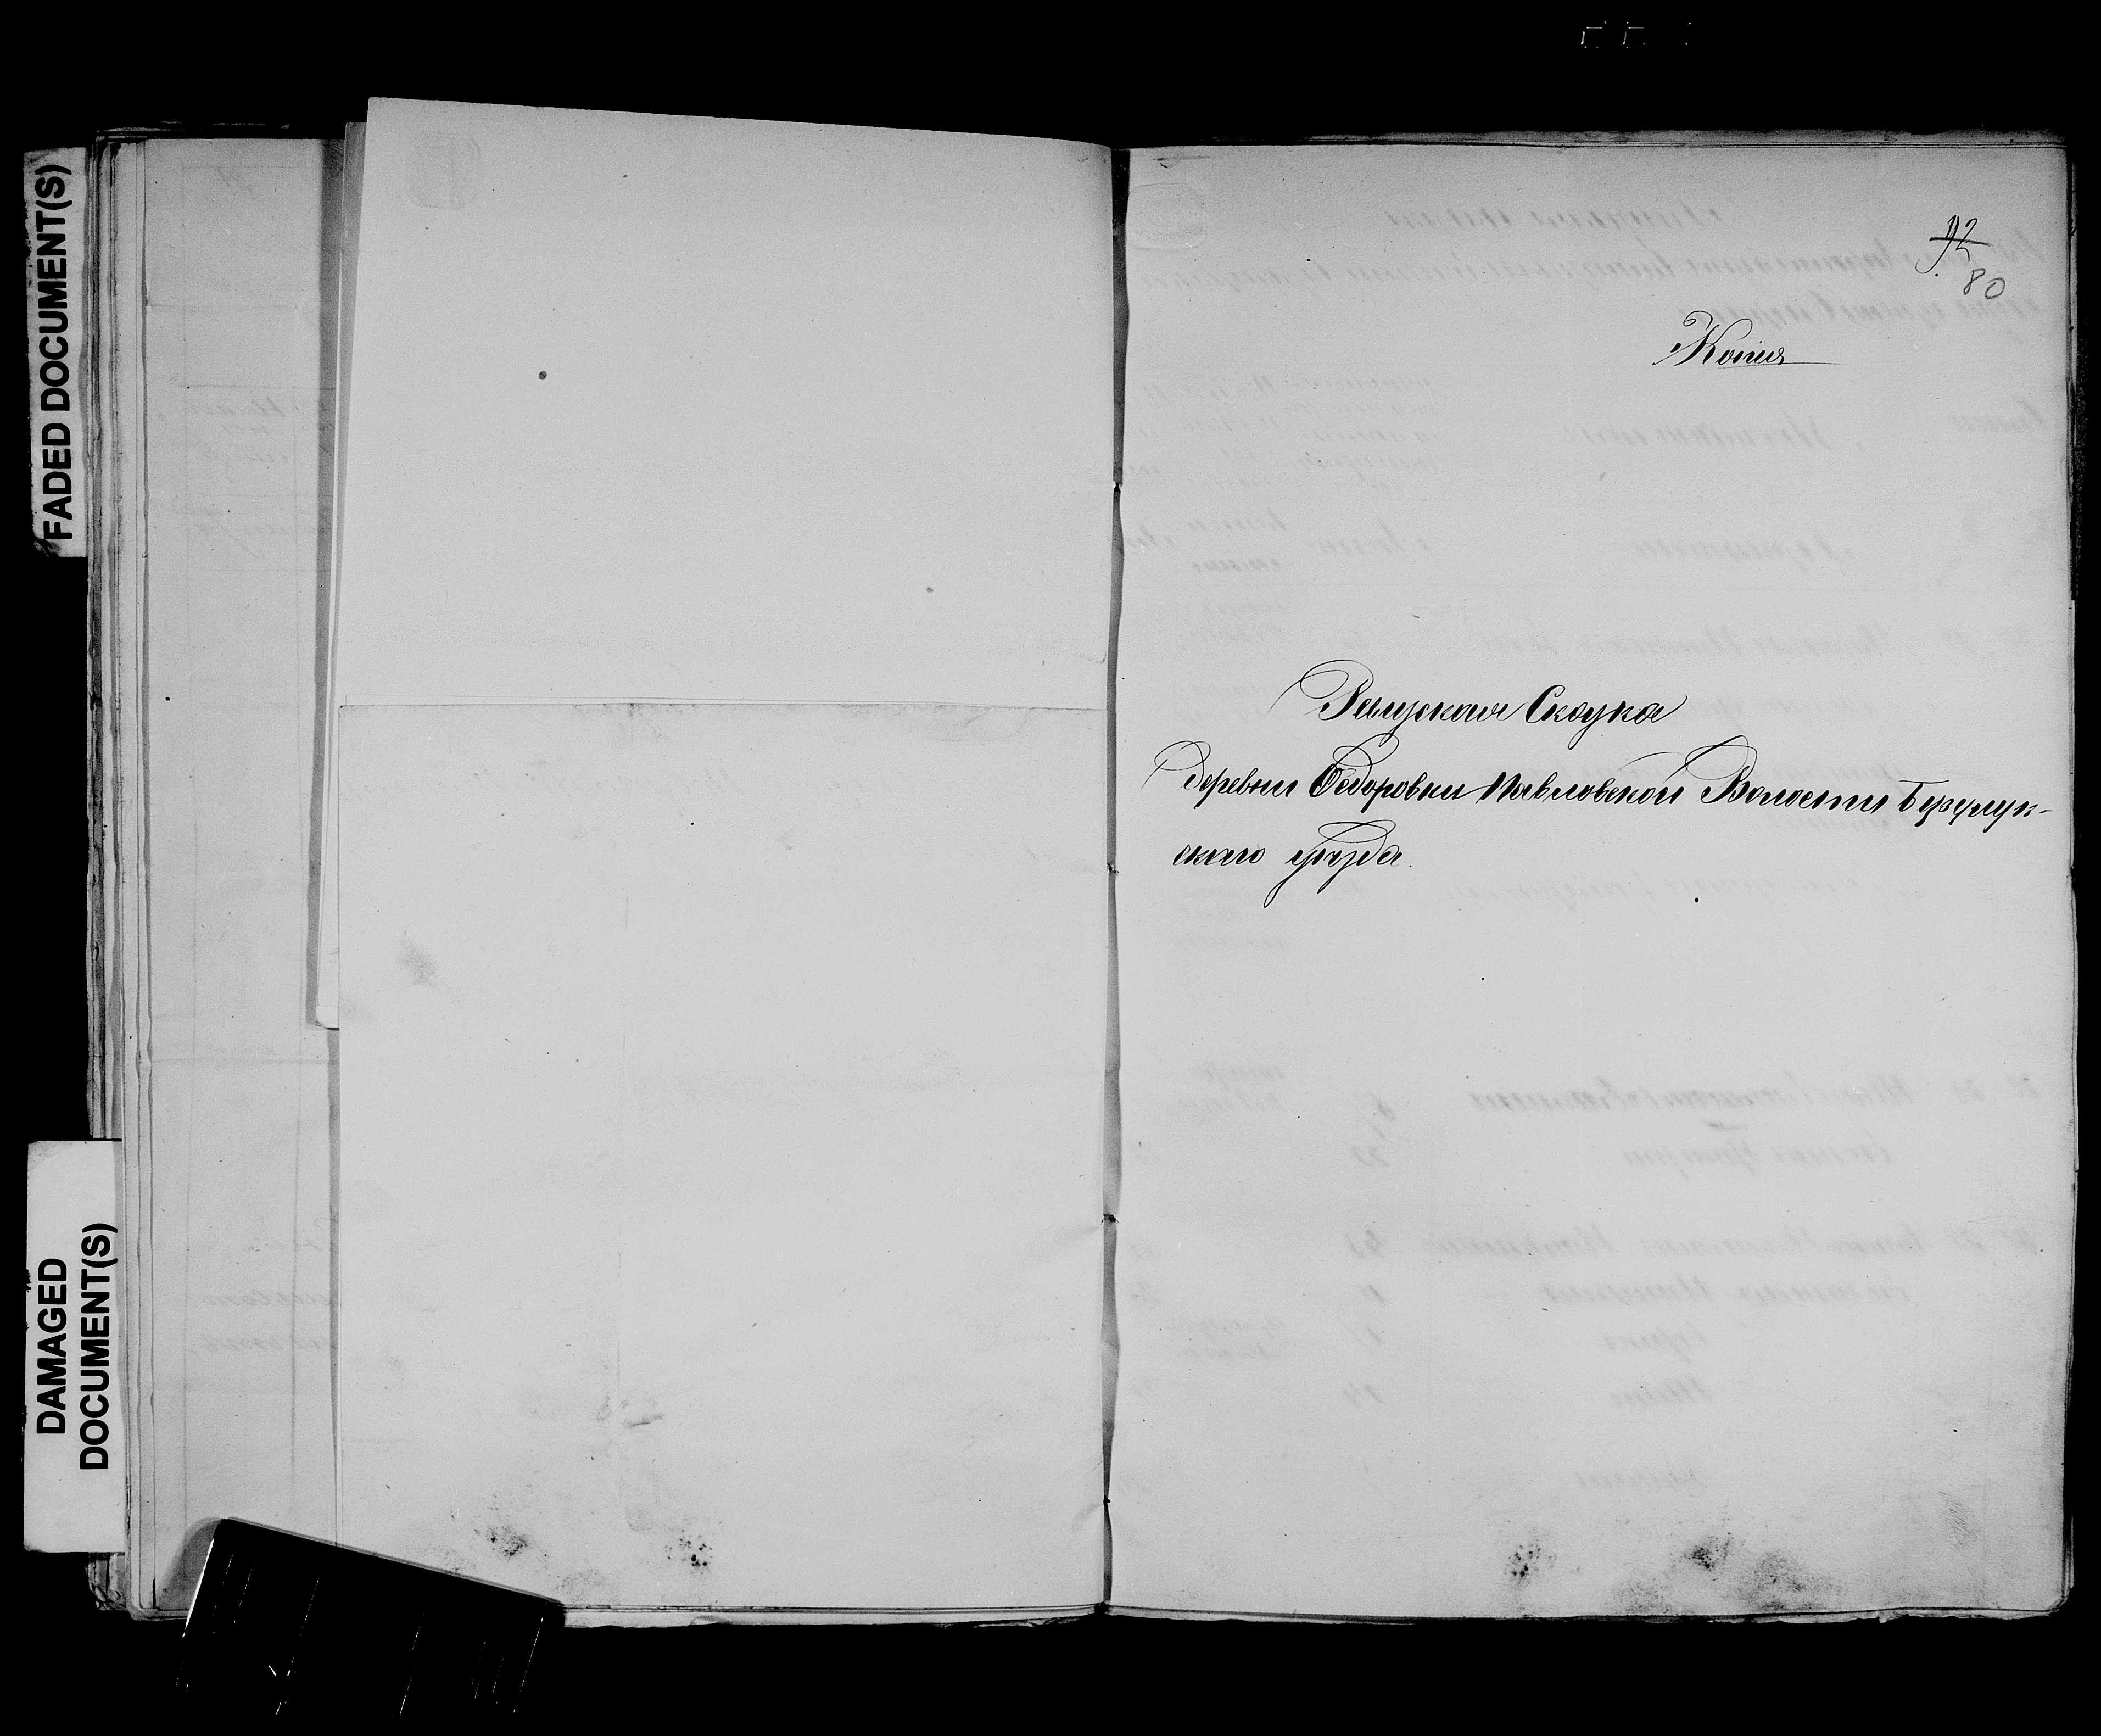 FADED DOCUMENT(S)
DAMAGED
DOCUMENT(S)
92
80
Копия
Ревизская Сказка
деревни Федоровки Павловской Волости Бузулук-
скаго уѣзда.